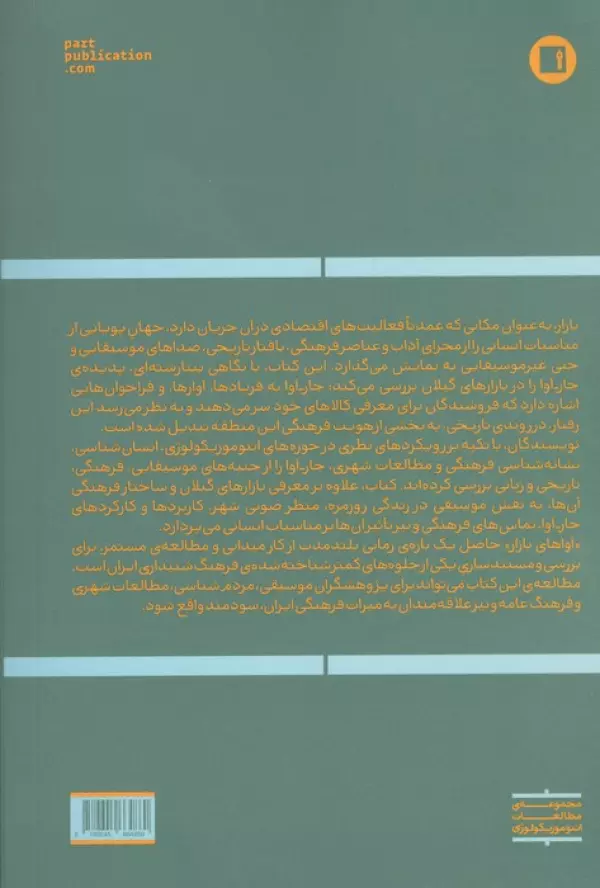 part
publication
.com
بازار، به‌عنوان مکانی که عمدتاً فعالیت‌های اقتصادی در آن جریان دارد، جهانِ پویایی از
مناسبات انسانی را از مجرای آداب و عناصر فرهنگی، بافتار تاریخی، صداهای موسیقایی و
حتی غیرموسیقایی به نمایش می‌گذارد. این کتاب، با نگاهی بینارشته‌ای، پدیده‌ی
جارـآوا را در بازارهای گیلان بررسی می‌کند؛ جارـآوا به فریادها، آوازها، و فراخوان‌هایی
اشاره دارد که فروشندگان برای معرفی کالاهای خود سر می‌دهند و به نظر می‌رسد این
رفتار، در روندی تاریخی، به بخشی از هویت فرهنگی این منطقه تبدیل شده است.
نویسندگان، با تکیه بر رویکردهای نظری در حوزه‌های اتنوموزیکولوژی، انسان‌شناسی،
نشانه‌شناسی فرهنگی و مطالعات شهری، جارـآوا را از جنبه‌های موسیقایی، فرهنگی،
تاریخی و زبانی بررسی کرده‌اند. کتاب، علاوه بر معرفی بازارهای گیلان و ساختار فرهنگی
آن‌ها، به نقش موسیقی در زندگی روزمره، منظر صوتی شهر، کاربردها و کارکردهای
جارـآوا، تماس‌های فرهنگی و نیز تأثیر آن‌ها بر مناسبات انسانی می‌پردازد.
«آواهای بازار» حاصل یک بازه‌ی زمانی بلندمدت از کار میدانی و مطالعه‌ی مستمر، برای
بررسی و مستندسازی یکی از جلوه‌های کمتر شناخته شده‌ی فرهنگ شنیداری ایران است.
مطالعه‌ی این کتاب می‌تواند برای پژوهشگران موسیقی، مردم‌شناسی، مطالعات شهری
و فرهنگ عامه و نیز علاقه‌مندان به میراث فرهنگی ایران، سودمند واقع شود.
مجموعه‌ی
مطالعات
اتنوموزیکولوژی